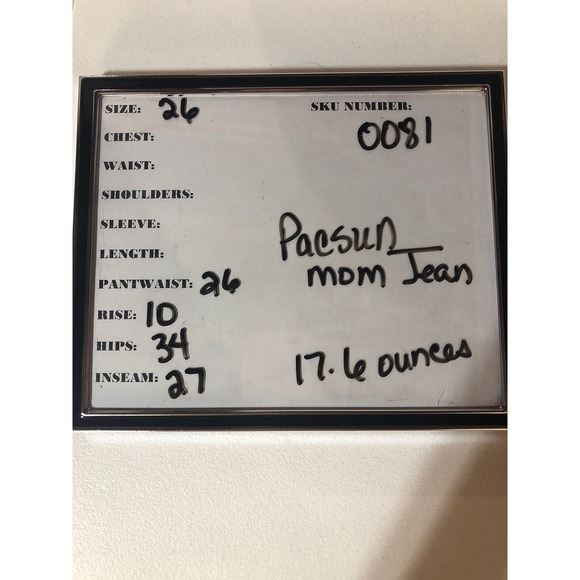 SIZE: 26 SKU NUMBER:
CHEST: 0081
WAIST:
SHOULDERS:
SLEEVE: Pacsun
LENGTH: mom Jean
PANTWAIST: 26
RISE: 10
HIPS: 34 17.6 ounces
INSEAM: 27